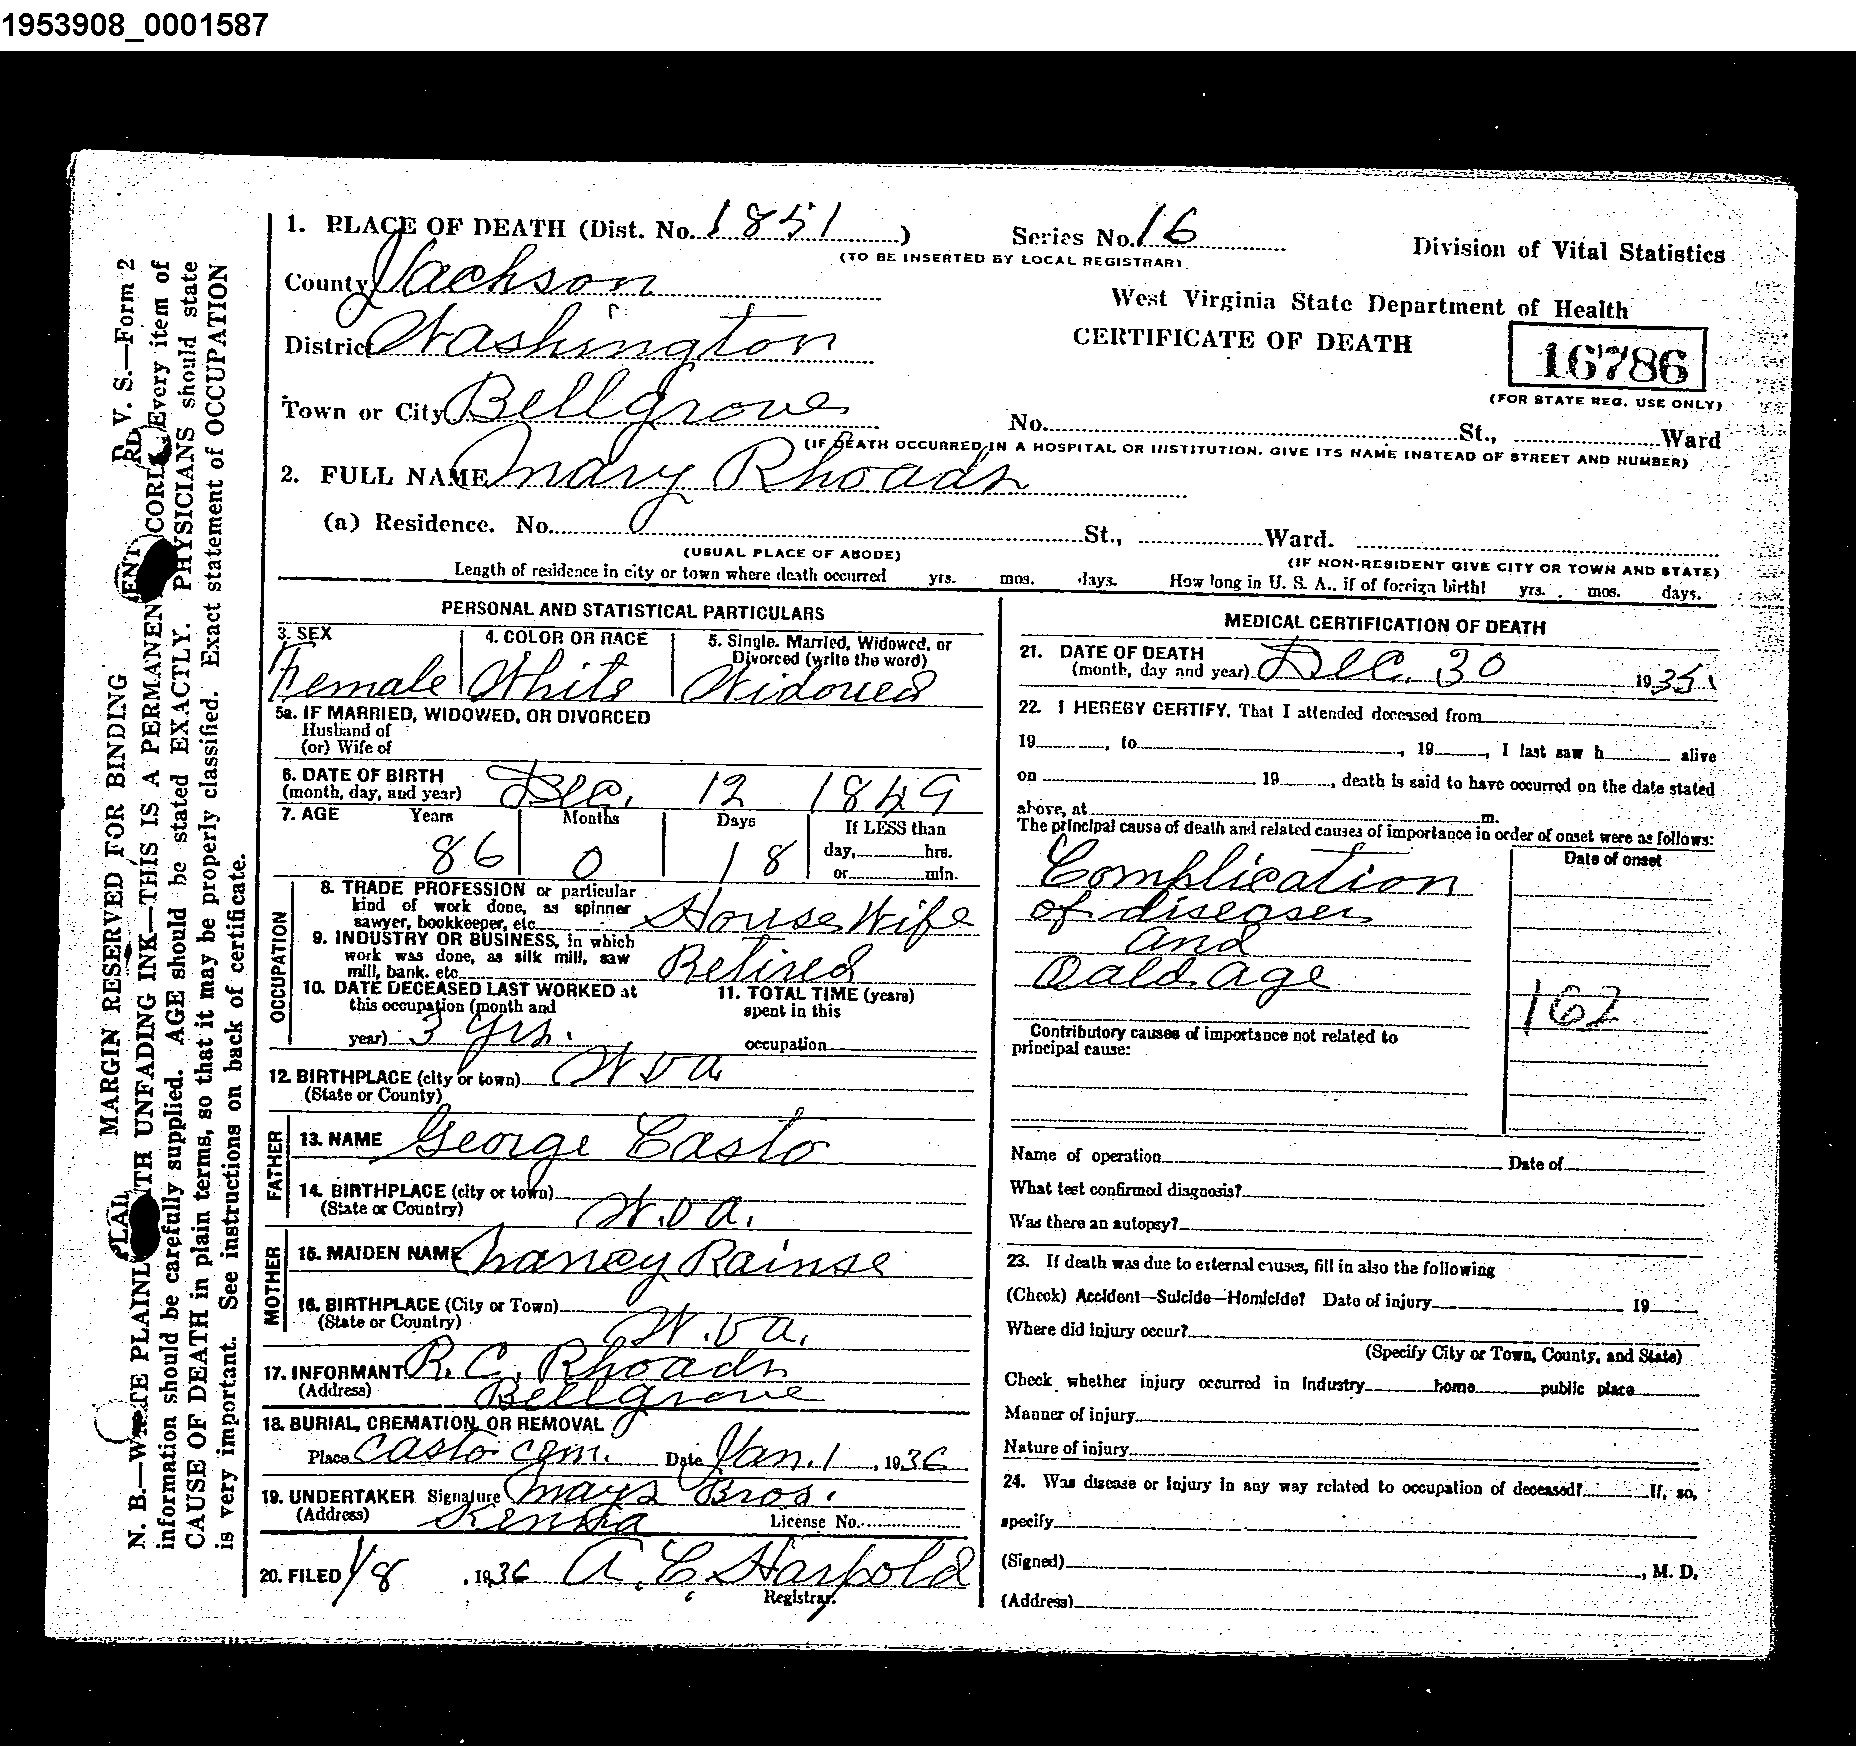 1953908_0001587
1. PLACE OF DEATH (Dist. No. 1851 )
Series No. 16
(TO BE INSERTED BY LOCAL REGISTRAR)
Division of Vital Statistics
County Jackson
West Virginia State Department of Health
District Washington
CERTIFICATE OF DEATH
16786
(FOR STATE REG. USE ONLY)
Town or City Bellgrove
No. St., Ward
(IF DEATH OCCURRED IN A HOSPITAL OR INSTITUTION, GIVE ITS NAME INSTEAD OF STREET AND NUMBER)
2. FULL NAME Mary Rhoads
(a) Residence. No. St., Ward.
(USUAL PLACE OF ABODE)
(IF NON-RESIDENT GIVE CITY OR TOWN AND STATE)
Length of residence in city or town where death occurred yrs. mos. days. How long in U. S. A., if of foreign birth? yrs. mos. days.
PERSONAL AND STATISTICAL PARTICULARS
3. SEX
Female
4. COLOR OR RACE
White
5. Single, Married, Widowed, or
Divorced (write the word)
Widowed
5a. IF MARRIED, WIDOWED, OR DIVORCED
Husband of
(or) Wife of
6. DATE OF BIRTH
(month, day, and year) Dec. 12 1849
7. AGE Years Months Days If LESS than
86 0 18 day, hrs.
or min.
OCCUPATION
8. TRADE PROFESSION or particular
kind of work done, as spinner
sawyer, bookkeeper, etc. House Wife
9. INDUSTRY OR BUSINESS, in which
work was done, as silk mill, saw
mill, bank, etc. Retired
10. DATE DECEASED LAST WORKED at
this occupation (month and
year) 3 yrs.
11. TOTAL TIME (years)
spent in this
occupation
12. BIRTHPLACE (city or town) W va
(State or County)
FATHER
13. NAME George Casto
14. BIRTHPLACE (city or town)
(State or Country) W. va.
MOTHER
15. MAIDEN NAME Nancy Rainse
16. BIRTHPLACE (City or Town)
(State or Country) W. va.
17. INFORMANT R. C. Rhoads
(Address) Bellgrove
18. BURIAL, CREMATION, OR REMOVAL
Place Casto cem. Date Jan. 1 , 1936
19. UNDERTAKER Signature Mays Bros.
(Address) Kenna License No.
20. FILED 1/8 , 1936 A. C. Harpold
Registrar.
MEDICAL CERTIFICATION OF DEATH
21. DATE OF DEATH
(month, day and year) Dec. 30 1935.
22. I HEREBY CERTIFY, That I attended deceased from
19 , to , 19 , I last saw h alive
on 19 , death is said to have occurred on the date stated
above, at m.
The principal cause of death and related causes of importance in order of onset were as follows:
Date of onset
Complication
of diseases
and
Oald age
162
Contributory causes of importance not related to
principal cause:
Name of operation Date of
What test confirmed diagnosis?
Was there an autopsy?
23. If death was due to external causes, fill in also the following
(Check) Accident—Suicide—Homicide? Date of injury 19
Where did injury occur?
(Specify City or Town, County, and State)
Check whether injury occurred in Industry home public place
Manner of injury
Nature of injury
24. Was disease or injury in any way related to occupation of deceased? If, so,
specify
(Signed) , M. D.
(Address)
V. S.—Form 2
MARGIN RESERVED FOR BINDING
N. B.—WRITE PLAINLY WITH UNFADING INK—THIS IS A PERMANENT RECORD. Every item of
information should be carefully supplied. AGE should be stated EXACTLY. PHYSICIANS should state
CAUSE OF DEATH in plain terms, so that it may be properly classified. Exact statement of OCCUPATION
is very important. See instructions on back of certificate.